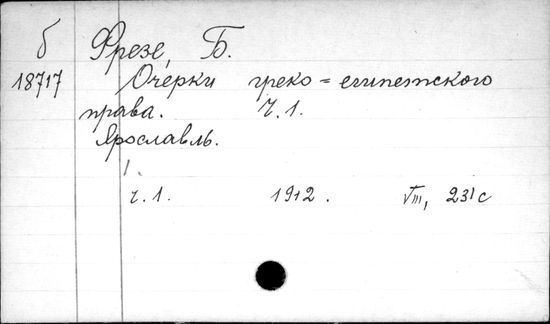 б Фрезе, Б.
18717 Очерки греко=египетского
права. Ч.1.
Ярославль.
1.
ч.1. 1912. VIII, 231с